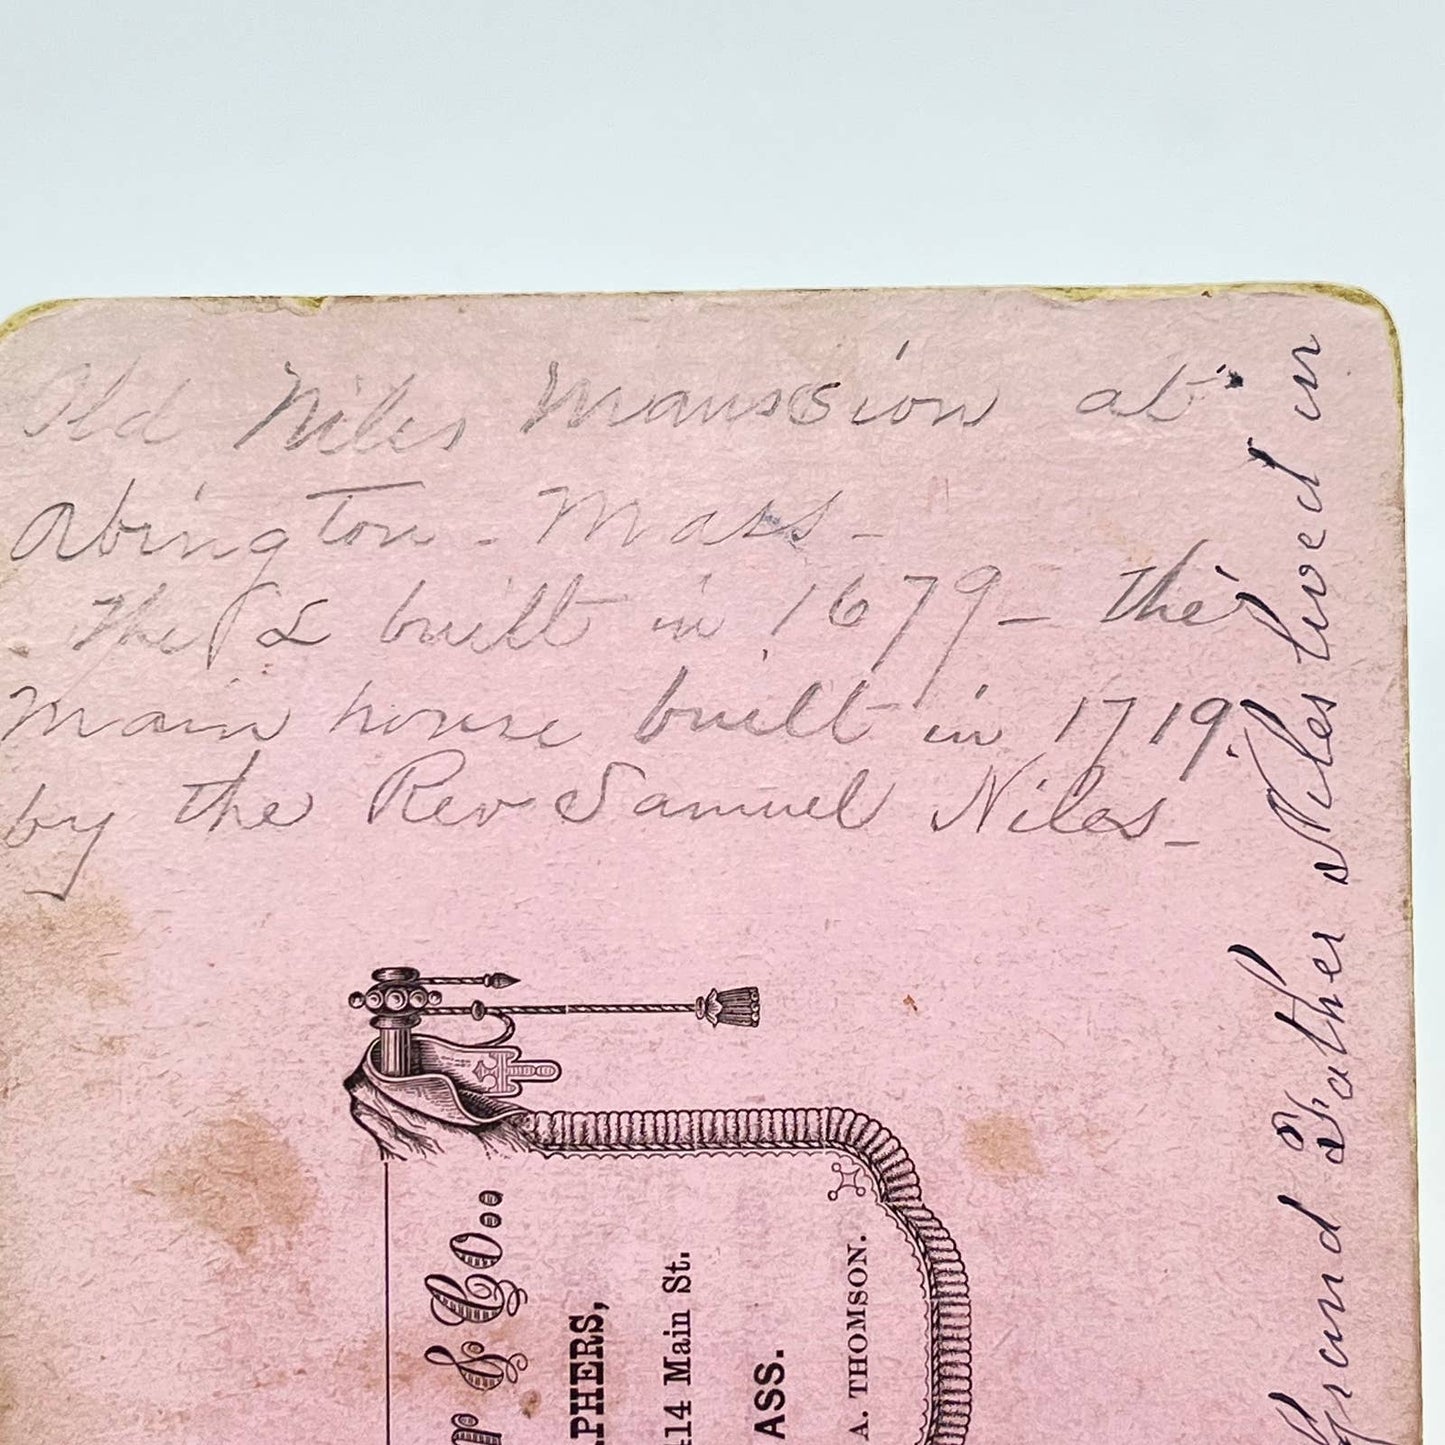 Old Niles Manssion at
Abington - Mass -
The L built in 1679 - the
Main house built in 1719.
by the Rev Samuel Niles -
Grand Father Niles lived in
& Co..
PHERS,
414 Main St.
ASS.
A. THOMSON.